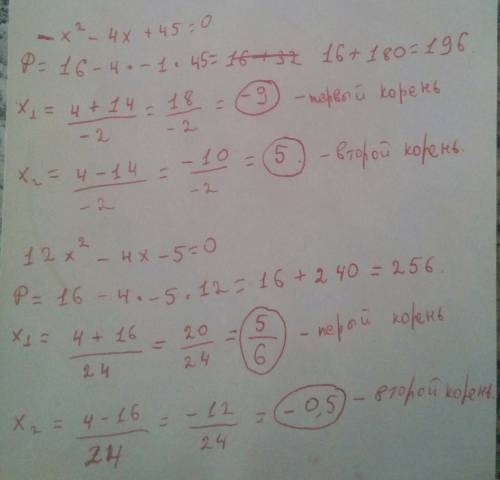 -x² - 4x + 45 = 0
P = 16 - 4 · -1 · 45 = 16 + 32 16 + 180 = 196.
x₁ = (4 + 14)/-2 = 18/-2 = -9 - первый корень
x₂ = (4 - 14)/-2 = -10/-2 = 5. - второй корень.
12x² - 4x - 5 = 0
P = 16 - 4 · -5 · 12 = 16 + 240 = 256.
x₁ = (4 + 16)/24 = 20/24 = 5/6 - перый корень
x₂ = (4 - 16)/24 = -12/24 = -0,5 - второй корень.